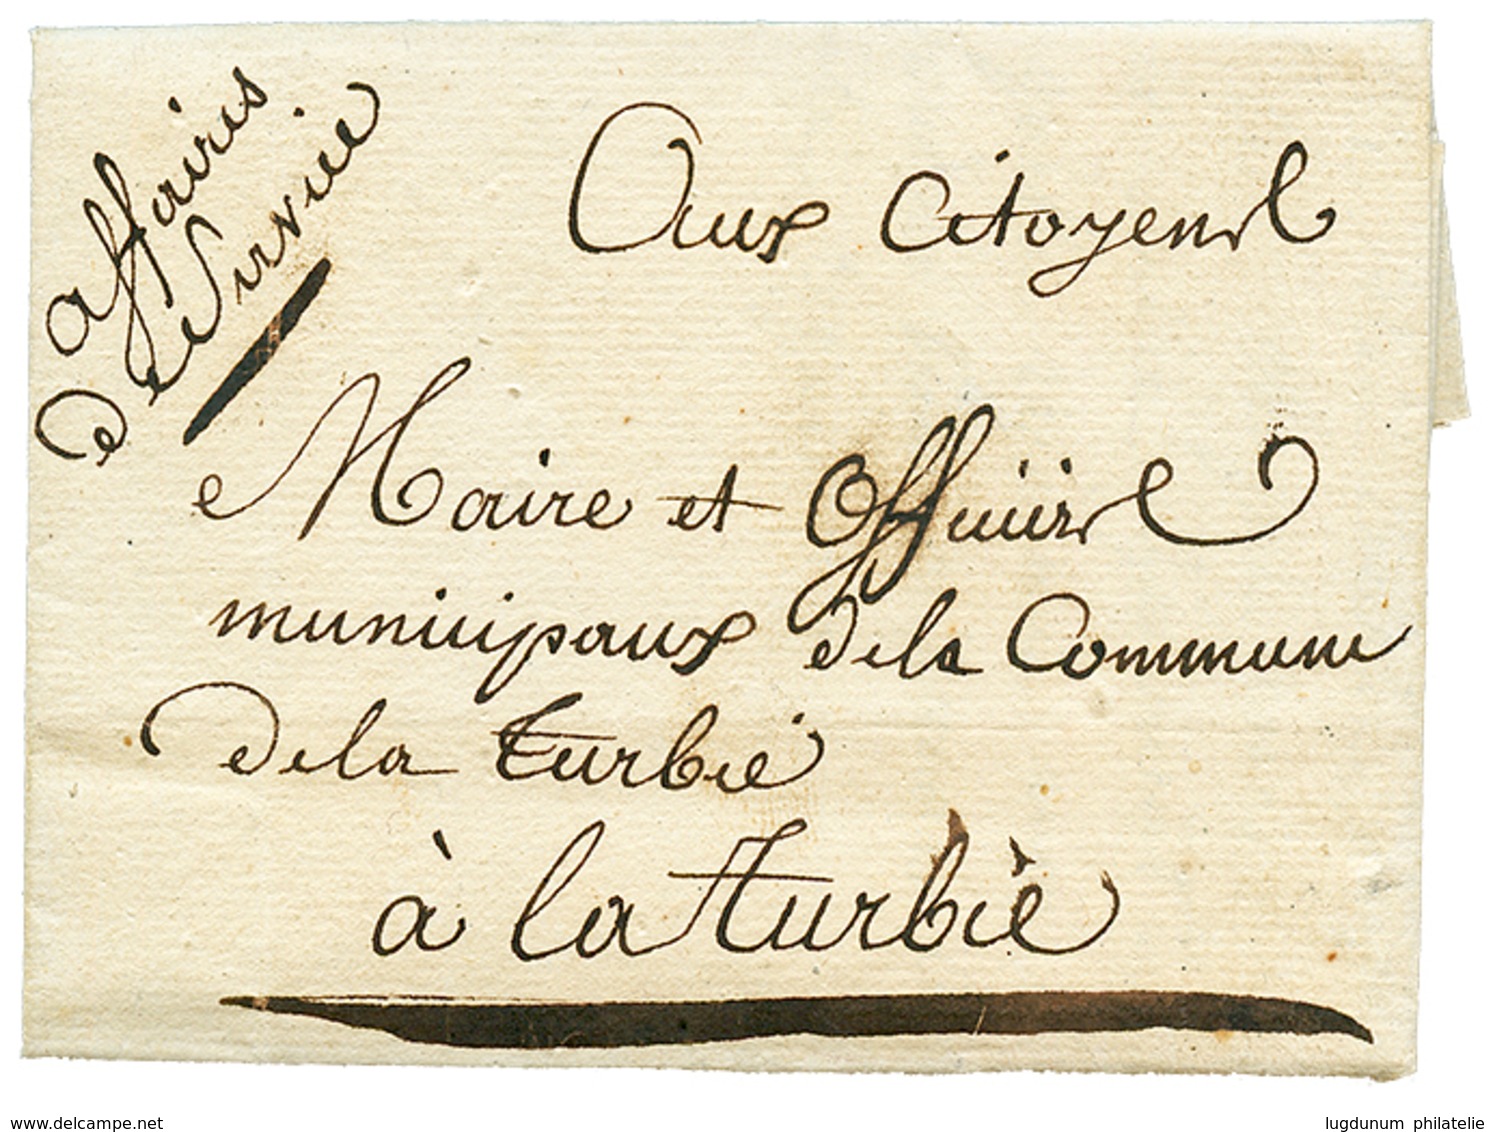 affaires
de Service
Aux Citoyens
Maire et Officiers
municipaux de la Commune
de la turbie
à la turbie
www.delcampe.net
lugdunum philatelie